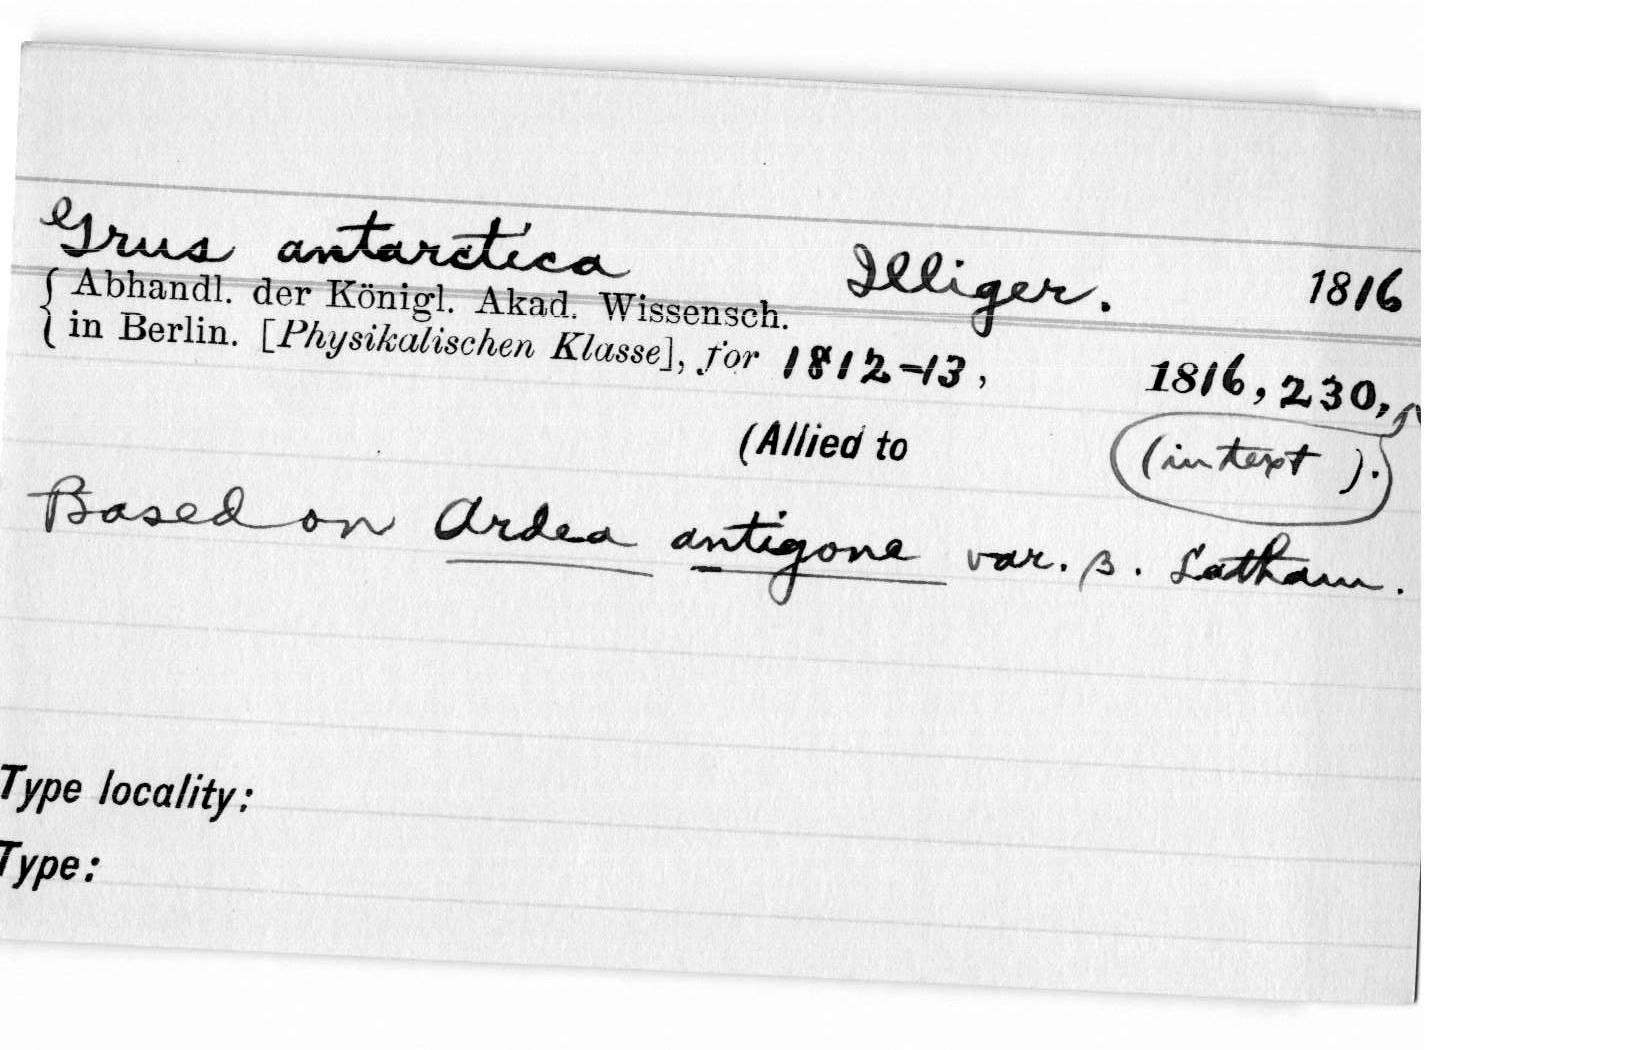 Grus antarctica Illiger. 1816
{ Abhandl. der Königl. Akad. Wissensch.
in Berlin. [Physikalischen Klasse], for 1812-13, 1816, 230,
(Allied to (in text ).
Based on Ardea antigone var. β. Latham.
Type locality:
Type: